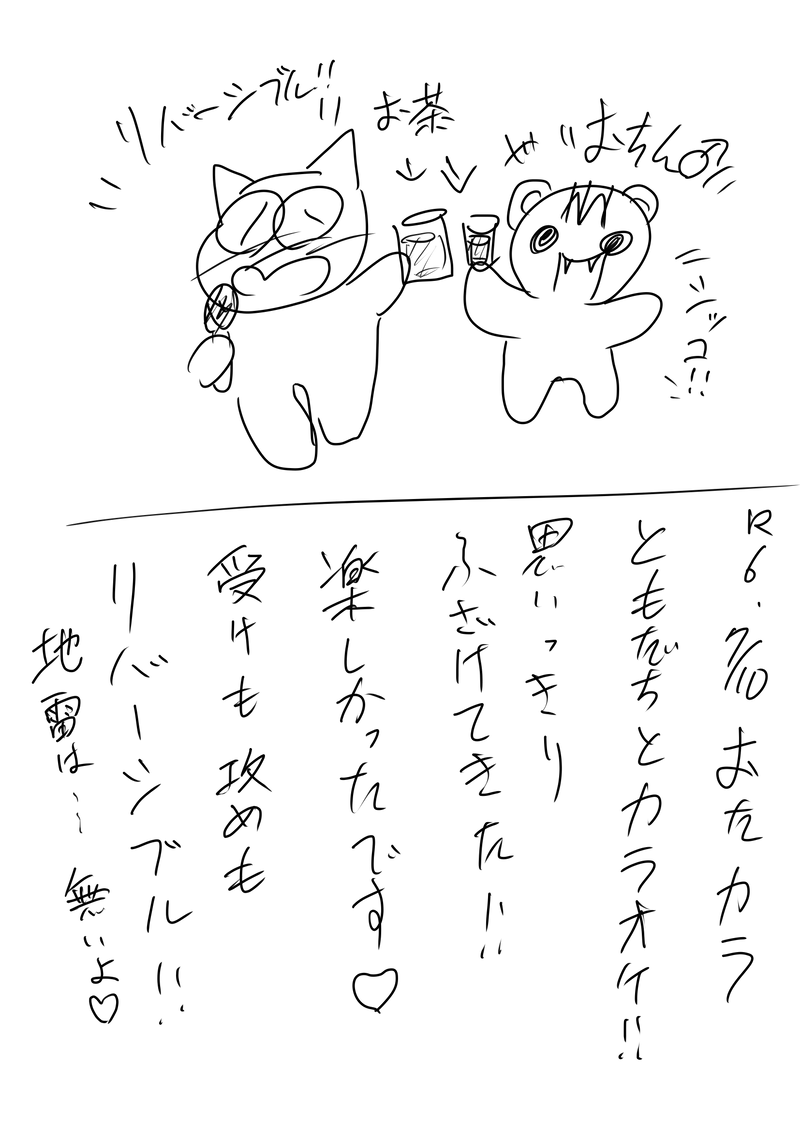 リバーシブル!!
お茶
↓↓
やりおちん♂
ニンッコ!!
R6.7/10 おたカラ
ともだちとカラオケ!!
思いっきり
ふざけてきた!!
楽しかったです♡
受けも攻めも
リバーシブル!!
地雷は… 無いよ♡